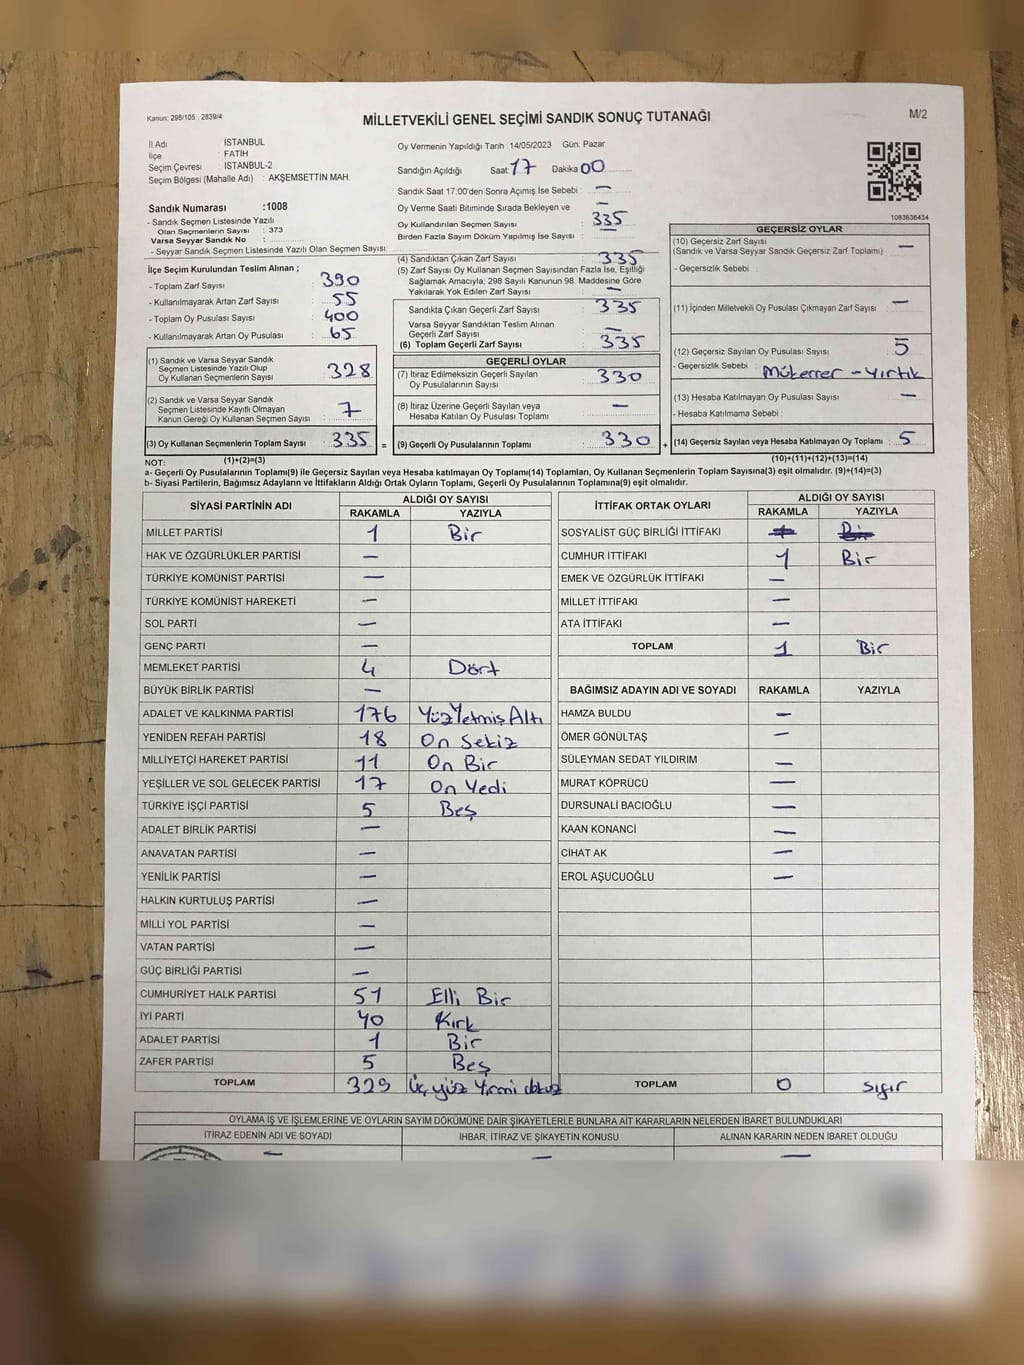 Kanun: 298/105 . 2839/4
MİLLETVEKİLİ GENEL SEÇİMİ SANDIK SONUÇ TUTANAĞI
M/2
İl Adı : İSTANBUL
İlçe : FATİH
Seçim Çevresi : İSTANBUL-2
Seçim Bölgesi (Mahalle Adı) : AKŞEMSETTİN MAH.
Oy Vermenin Yapıldığı Tarih : 14/05/2023 Gün: Pazar
Sandığın Açıldığı Saat: 17 Dakika 00
Sandık Saat 17:00'den Sonra Açımış İse Sebebi : —
Oy Verme Saati Bitiminde Sırada Bekleyen ve —
Oy Kullandırılan Seçmen Sayısı : 335
Birden Fazla Sayım Döküm Yapılmış İse Sayısı : —
1083636434
Sandık Numarası :1008
- Sandık Seçmen Listesinde Yazılı
Olan Seçmenlerin Sayısı : 373
Varsa Seyyar Sandık No :
- Seyyar Sandık Seçmen Listesinde Yazılı Olan Seçmen Sayısı:
İlçe Seçim Kurulundan Teslim Alınan ;
- Toplam Zarf Sayısı : 390
- Kullanılmayarak Artan Zarf Sayısı : 55
- Toplam Oy Pusulası Sayısı : 400
- Kullanılmayarak Artan Oy Pusulası : 65
(1) Sandık ve Varsa Seyyar Sandık
Seçmen Listesinde Yazılı Olup
Oy Kullanan Seçmenlerin Sayısı : 328
(2) Sandık ve Varsa Seyyar Sandık
Seçmen Listesinde Kayıtlı Olmayan
Kanun Gereği Oy Kullanan Seçmen Sayısı : 7
(3) Oy Kullanan Seçmenlerin Toplam Sayısı : 335
(1)+(2)=(3)
(4) Sandıktan Çıkan Zarf Sayısı : 335
(5) Zarf Sayısı Oy Kullanan Seçmen Sayısından Fazla İse, Eşitliği
Sağlamak Amacıyla; 298 Sayılı Kanunun 98. Maddesine Göre
Yakılarak Yok Edilen Zarf Sayısı : —
Sandıkta Çıkan Geçerli Zarf Sayısı : 335
Varsa Seyyar Sandıktan Teslim Alınan
Geçerli Zarf Sayısı : —
(6) Toplam Geçerli Zarf Sayısı : 335
GEÇERLİ OYLAR
(7) İtiraz Edilmeksizin Geçerli Sayılan
Oy Pusulalarının Sayısı : 330
(8) İtiraz Üzerine Geçerli Sayılan veya
Hesaba Katılan Oy Pusulası Toplamı : —
= (9) Geçerli Oy Pusulalarının Toplamı : 330 +
GEÇERSİZ OYLAR
(10) Geçersiz Zarf Sayısı
(Sandık ve Varsa Seyyar Sandık Geçersiz Zarf Toplamı) : —
- Geçersizlik Sebebi :
(11) İçinden Milletvekili Oy Pusulası Çıkmayan Zarf Sayısı : —
(12) Geçersiz Sayılan Oy Pusulası Sayısı : 5
- Geçersizlik Sebebi : Mükerrer - Yırtık
(13) Hesaba Katılmayan Oy Pusulası Sayısı : —
- Hesaba Katılmama Sebebi :
(14) Geçersiz Sayılan veya Hesaba Katılmayan Oy Toplamı : 5
(10)+(11)+(12)+(13)=(14)
NOT:
a- Geçerli Oy Pusulalarının Toplamı(9) ile Geçersiz Sayılan veya Hesaba katılmayan Oy Toplamı(14) Toplamları, Oy Kullanan Seçmenlerin Toplam Sayısına(3) eşit olmalıdır. (9)+(14)=(3)
b- Siyasi Partilerin, Bağımsız Adayların ve İttifakların Aldığı Ortak Oyların Toplamı, Geçerli Oy Pusulalarının Toplamına(9) eşit olmalıdır.
SİYASİ PARTİNİN ADI ALDIĞI OY SAYISI
RAKAMLA YAZIYLA
MİLLET PARTİSİ 1 Bir
HAK VE ÖZGÜRLÜKLER PARTİSİ —
TÜRKİYE KOMÜNİST PARTİSİ —
TÜRKİYE KOMÜNİST HAREKETİ —
SOL PARTİ —
GENÇ PARTİ —
MEMLEKET PARTİSİ 4 Dört
BÜYÜK BİRLİK PARTİSİ —
ADALET VE KALKINMA PARTİSİ 176 YüzYetmişAltı
YENİDEN REFAH PARTİSİ 18 On Sekiz
MİLLİYETÇİ HAREKET PARTİSİ 11 On Bir
YEŞİLLER VE SOL GELECEK PARTİSİ 17 On Yedi
TÜRKİYE İŞÇİ PARTİSİ 5 Beş
ADALET BİRLİK PARTİSİ —
ANAVATAN PARTİSİ —
YENİLİK PARTİSİ —
HALKIN KURTULUŞ PARTİSİ —
MİLLİ YOL PARTİSİ —
VATAN PARTİSİ —
GÜÇ BİRLİĞİ PARTİSİ —
CUMHURİYET HALK PARTİSİ 51 Elli Bir
İYİ PARTİ 40 Kırk
ADALET PARTİSİ 1 Bir
ZAFER PARTİSİ 5 Beş
TOPLAM 329 Üç yüz Yirmi dokuz
İTTİFAK ORTAK OYLARI ALDIĞI OY SAYISI
RAKAMLA YAZIYLA
SOSYALİST GÜÇ BİRLİĞİ İTTİFAKI 1 Bir
CUMHUR İTTİFAKI 1 Bir
EMEK VE ÖZGÜRLÜK İTTİFAKI —
MİLLET İTTİFAKI —
ATA İTTİFAKI —
TOPLAM 1 Bir
BAĞIMSIZ ADAYIN ADI VE SOYADI RAKAMLA YAZIYLA
HAMZA BULDU —
ÖMER GÖNÜLTAŞ —
SÜLEYMAN SEDAT YILDIRIM —
MURAT KÖPRÜCÜ —
DURSUNALİ BACIOĞLU —
KAAN KONANCİ —
CİHAT AK —
EROL AŞUCUOĞLU —
TOPLAM 0 sıfır
OYLAMA İŞ VE İŞLEMLERİNE VE OYLARIN SAYIM DÖKÜMÜNE DAİR ŞİKAYETLERLE BUNLARA AİT KARARLARIN NELERDEN İBARET BULUNDUKLARI
İTİRAZ EDENİN ADI VE SOYADI İHBAR, İTİRAZ VE ŞİKAYETİN KONUSU ALINAN KARARIN NEDEN İBARET OLDUĞU
— — —